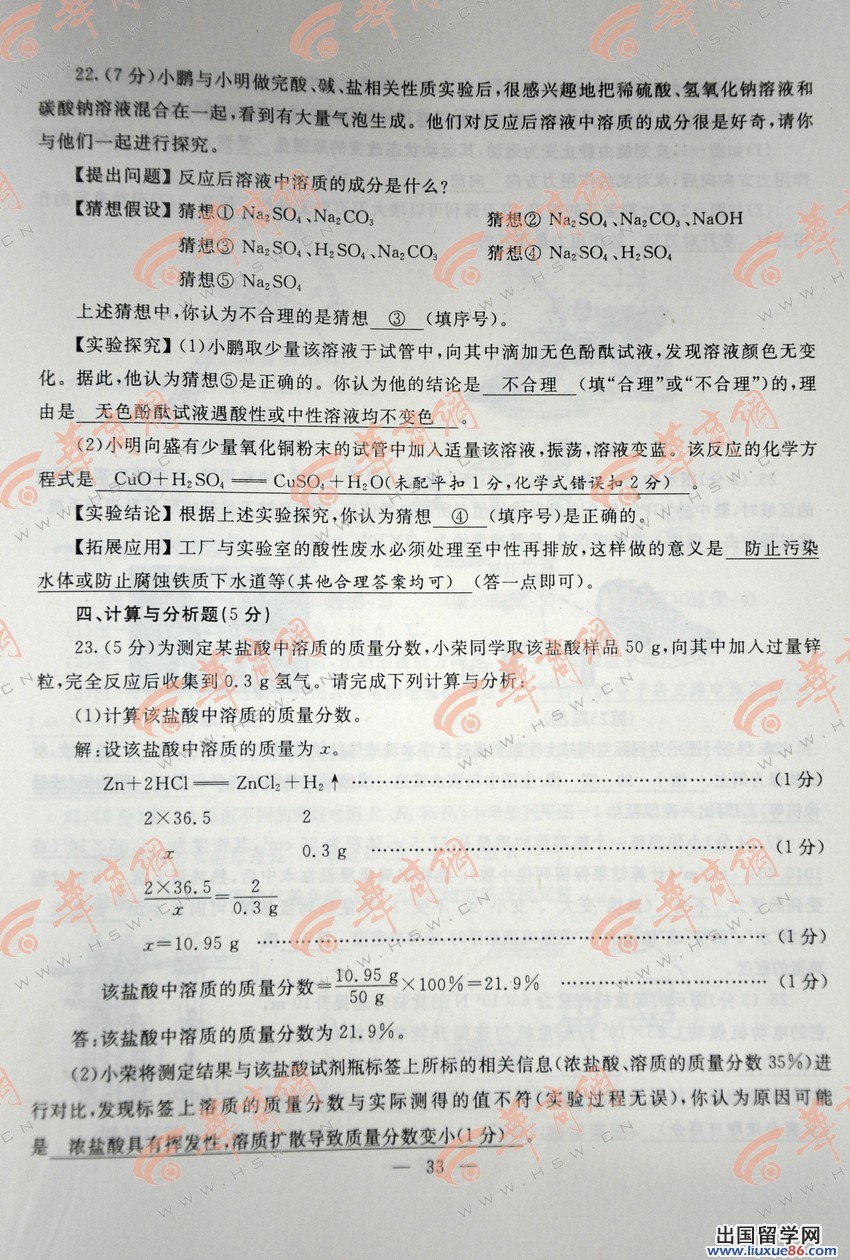 22.(7分)小鹏与小明做完酸、碱、盐相关性质实验后,很感兴趣地把稀硫酸、氢氧化钠溶液和
碳酸钠溶液混合在一起,看到有大量气泡生成。他们对反应后溶液中溶质的成分很是好奇,请你
与他们一起进行探究。
【提出问题】反应后溶液中溶质的成分是什么?
【猜想假设】猜想① Na₂SO₄、Na₂CO₃ 猜想② Na₂SO₄、Na₂CO₃、NaOH
猜想③ Na₂SO₄、H₂SO₄、Na₂CO₃ 猜想④ Na₂SO₄、H₂SO₄
猜想⑤ Na₂SO₄
上述猜想中,你认为不合理的是猜想 ③ (填序号)。
【实验探究】(1)小鹏取少量该溶液于试管中,向其中滴加无色酚酞试液,发现溶液颜色无变
化。据此,他认为猜想⑤是正确的。你认为他的结论是 不合理 (填“合理”或“不合理”)的,理
由是 无色酚酞试液遇酸性或中性溶液均不变色 。
(2)小明向盛有少量氧化铜粉末的试管中加入适量该溶液,振荡,溶液变蓝。该反应的化学方
程式是 CuO+H₂SO₄══CuSO₄+H₂O(未配平扣1分,化学式错误扣2分) 。
【实验结论】根据上述实验探究,你认为猜想 ④ (填序号)是正确的。
【拓展应用】工厂与实验室的酸性废水必须处理至中性再排放,这样做的意义是 防止污染
水体或防止腐蚀铁质下水道等(其他合理答案均可) (答一点即可)。
四、计算与分析题(5分)
23.(5分)为测定某盐酸中溶质的质量分数,小荣同学取该盐酸样品50 g,向其中加入过量锌
粒,完全反应后收集到0.3 g氢气。请完成下列计算与分析:
(1)计算该盐酸中溶质的质量分数。
解:设该盐酸中溶质的质量为x。
Zn+2HCl══ZnCl₂+H₂↑ ……………………………………(1分)
2×36.5 2
x 0.3 g ……………………………………(1分)
2×36.5/x=2/0.3 g
x=10.95 g ……………………………………(1分)
该盐酸中溶质的质量分数=10.95 g/50 g×100%=21.9% ………………(1分)
答:该盐酸中溶质的质量分数为21.9%。
(2)小荣将测定结果与该盐酸试剂瓶标签上所标的相关信息(浓盐酸、溶质的质量分数35%)进
行对比,发现标签上溶质的质量分数与实际测得的值不符(实验过程无误),你认为原因可能
是 浓盐酸具有挥发性,溶质扩散导致质量分数变小(1分) 。
— 33 —
华商网
WWW.HSW.CN
出国留学网
www.liuxue86.com